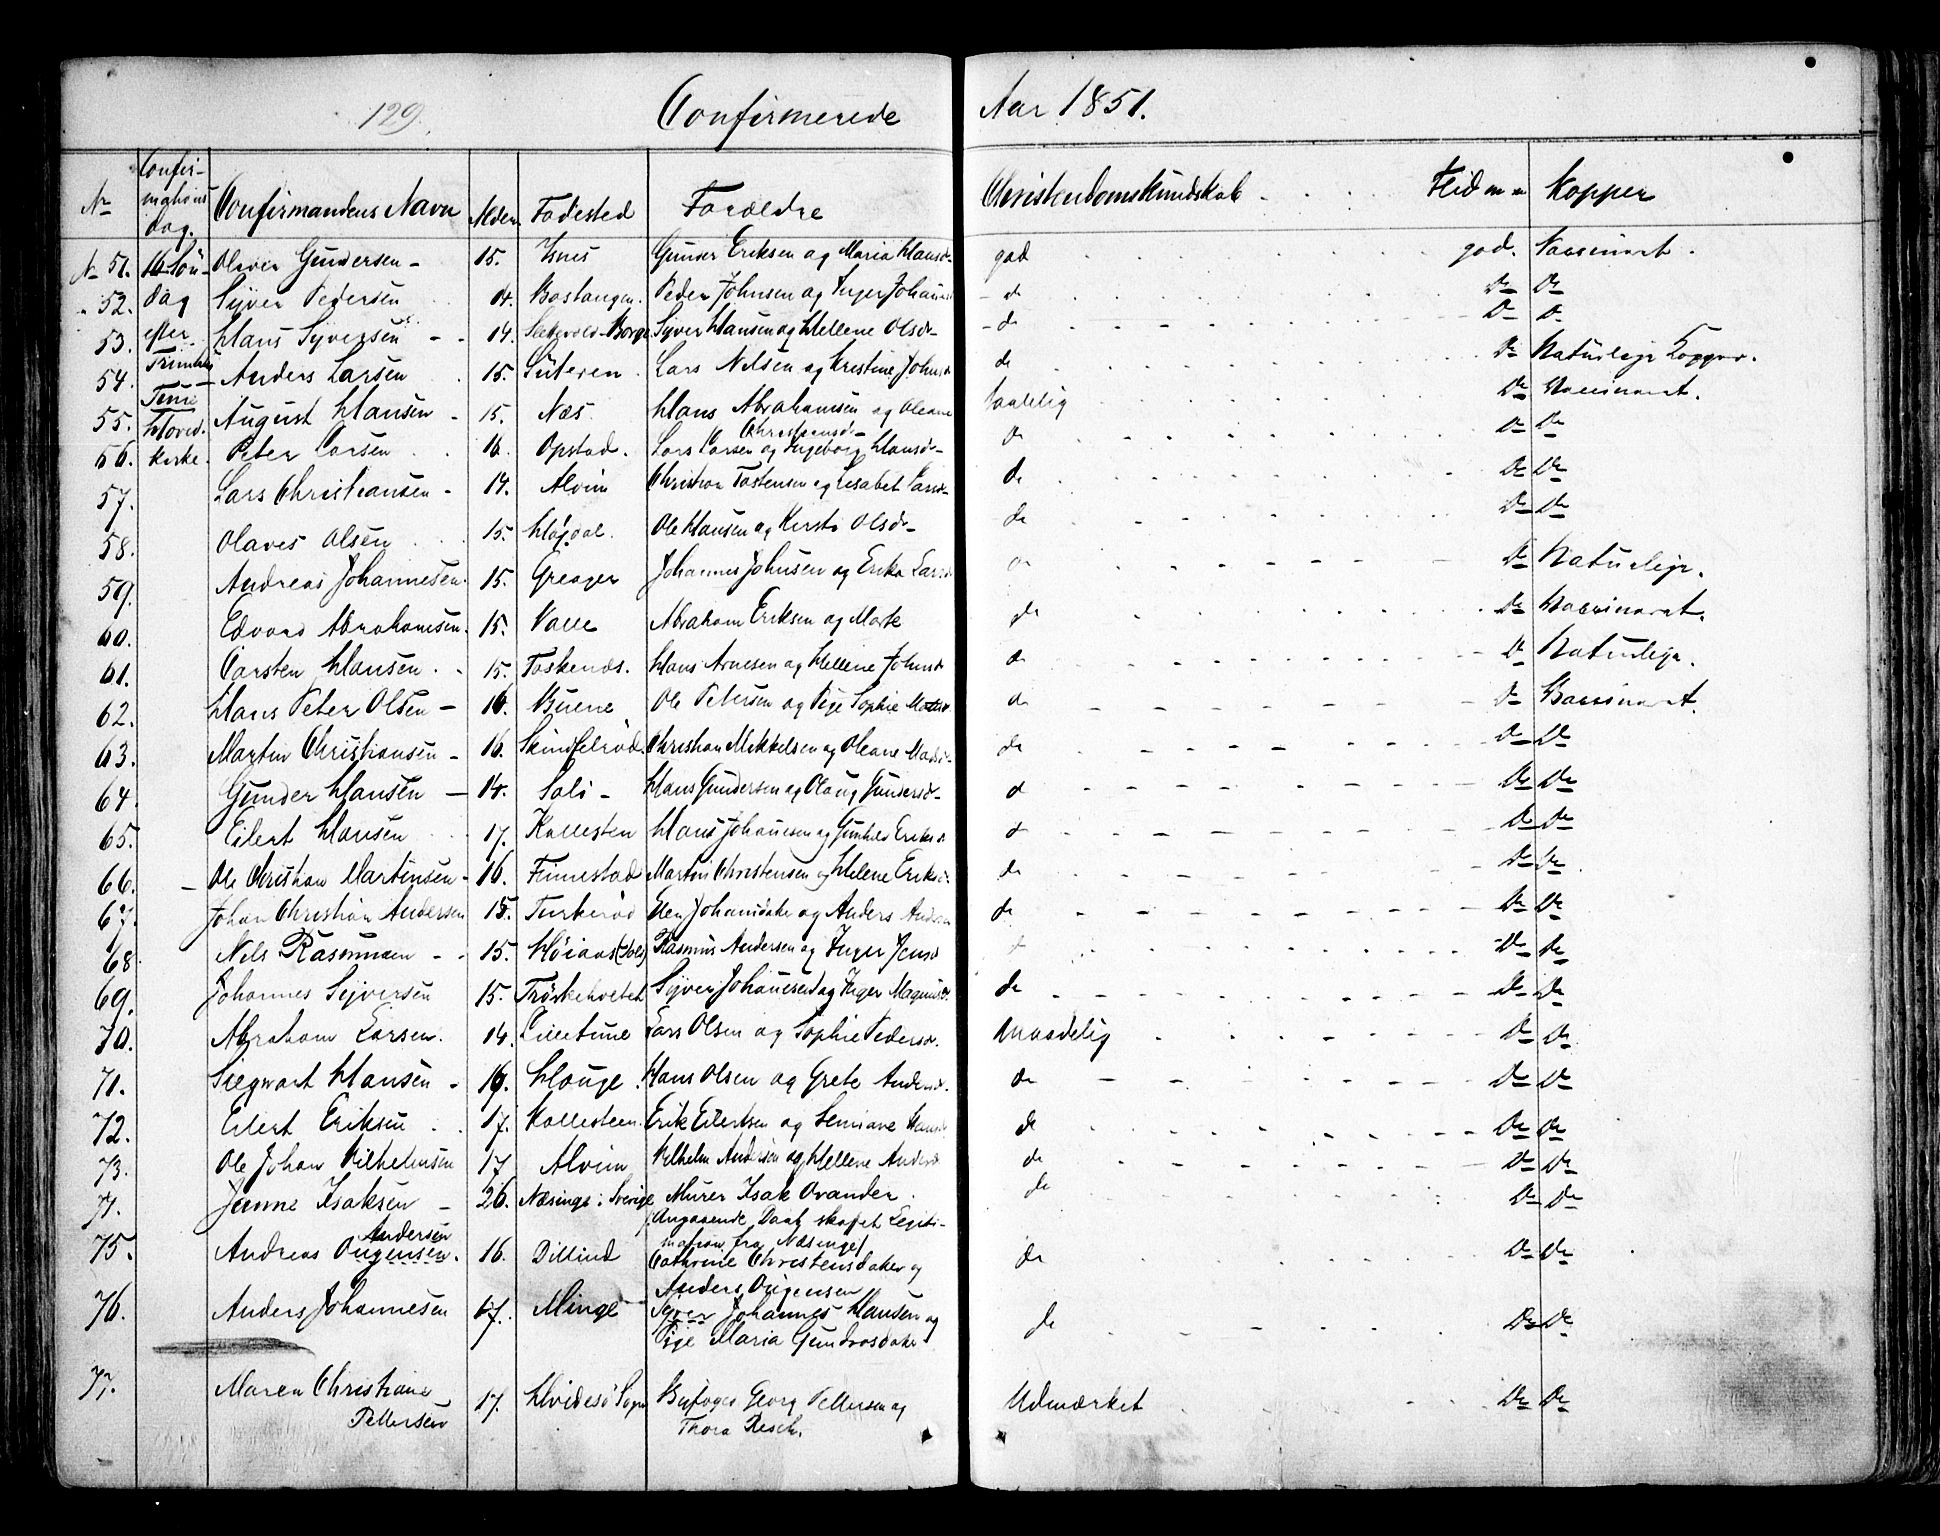 129.
Confirmerede Aar 1851.
Nr Confir- mations dag. Confirmandens Navn Alder Fødested Forældre Christendomskundskab Flid Kopper
N 51. 16 Søn- Olaves Gundersen 15. Gunder Eriksen og Maria Hansd. god god. Vaccineret.
52. dag Syver Pedersen 14. Bostangen. Peder Johnsen og Inger Johannesd. do Do Do
53. efter Hans Syversen 14. Borge Syver Hansen og Hellene Olsd. do Do Do
54. Trinitatis Anders Larsen 15. Lars Nilsen og Kristine Johnsd. do Do Naturlige Kopper.
55. Tune Hoved. August Hansen 15. Næs. Hans Abrahamsen og Oleane Christiansd. taalelig Do Vaccineret.
56. Kirke. Peter Larsen 16. Opstad. Lars Larsen og Ingeborg Hansd. Do Do Do
57. Lars Christiansen 14. Alvim Christian Tostensen og Lisabet Larsd. do Do Do
58. Olaves Olsen 15. Ole Hansen og Kersti Olsd. do Do Do
59. Andreas Johannesen. 15. Greager Johannes Johnsen og Erika Larsd. do Do Naturlige.
60. Edvard Abrahamsen. 15. Valle Abraham Eriksen og Marte do Do Vaccineret.
61. Carsten Hansen. 15. Taskenæs. Hans Arnesen og Hellene Johnsd. do Do Naturlige.
62. Hans Peter Olsen 16. Buene Ole Petersen og Pige Sophie do Do Vaccineret.
63. Martin Christiansen 16. Skindfelrød Christian Mikkelsen og Oleane Madsd. do Do Do
64. Gunder Hansen 14. Soli Hans Gundersen og Olaug Gundersd. do Do Do
65. Eilert Hansen 17. Kallesten Hans Johanesen og Gunhild Eriksd. do Do Do
66. Ole Christian Martinsen 16. Finnestad Martin Christensen og Helene Eriksd. do Do Do
67. Johan Christian Andersen 15. Turkerød Ellen Johansdater og Anders do Do Do
68. Nels Rasmusen 15. (Soli) Rasmus Andersen og Inger Jensd. Do Do
69. Johannes Syversen 15. Trøskehoelet Syver Johanesen og Inger Magnusd. do Do Do
70. Abraham Larsen. 14. Lilletune Lars Olsen og Sophie Pedersd. Maadelig Do Do
71. Siegwart Hansen 16. Hauge. Hans Olsen og Grete Andersd. do Do Do
72. Eilert Eriksen 17. Kallesteen. Erik Eilertsen og Hansd. do Do Do
73. Ole Johan Vilhelmsen 17 Alvim Vilhelm Andersen og Hellene Andersd. do Do Do
74. Janne Isaksen 26. Næsinge i Sverige Murer Isak Ovander. do Do Do
/:Angaaende Daab skaffet Legiti-
mation fra Næsinge/
75. Andreas Ongensen. Andersen 16. Dillind Cathrine Christensdater og do Do Do
Anders Ongensen
76. Anders Johannesen 17. Minge Syver Johannes Hansen og do Do Do
Pige Maria Gundrosdater
77. Maren Christiane Pettersen 17. Hvidesø Sogn Byfoged Georg Pettersen og Udmærket Do Do
Thora Resch.